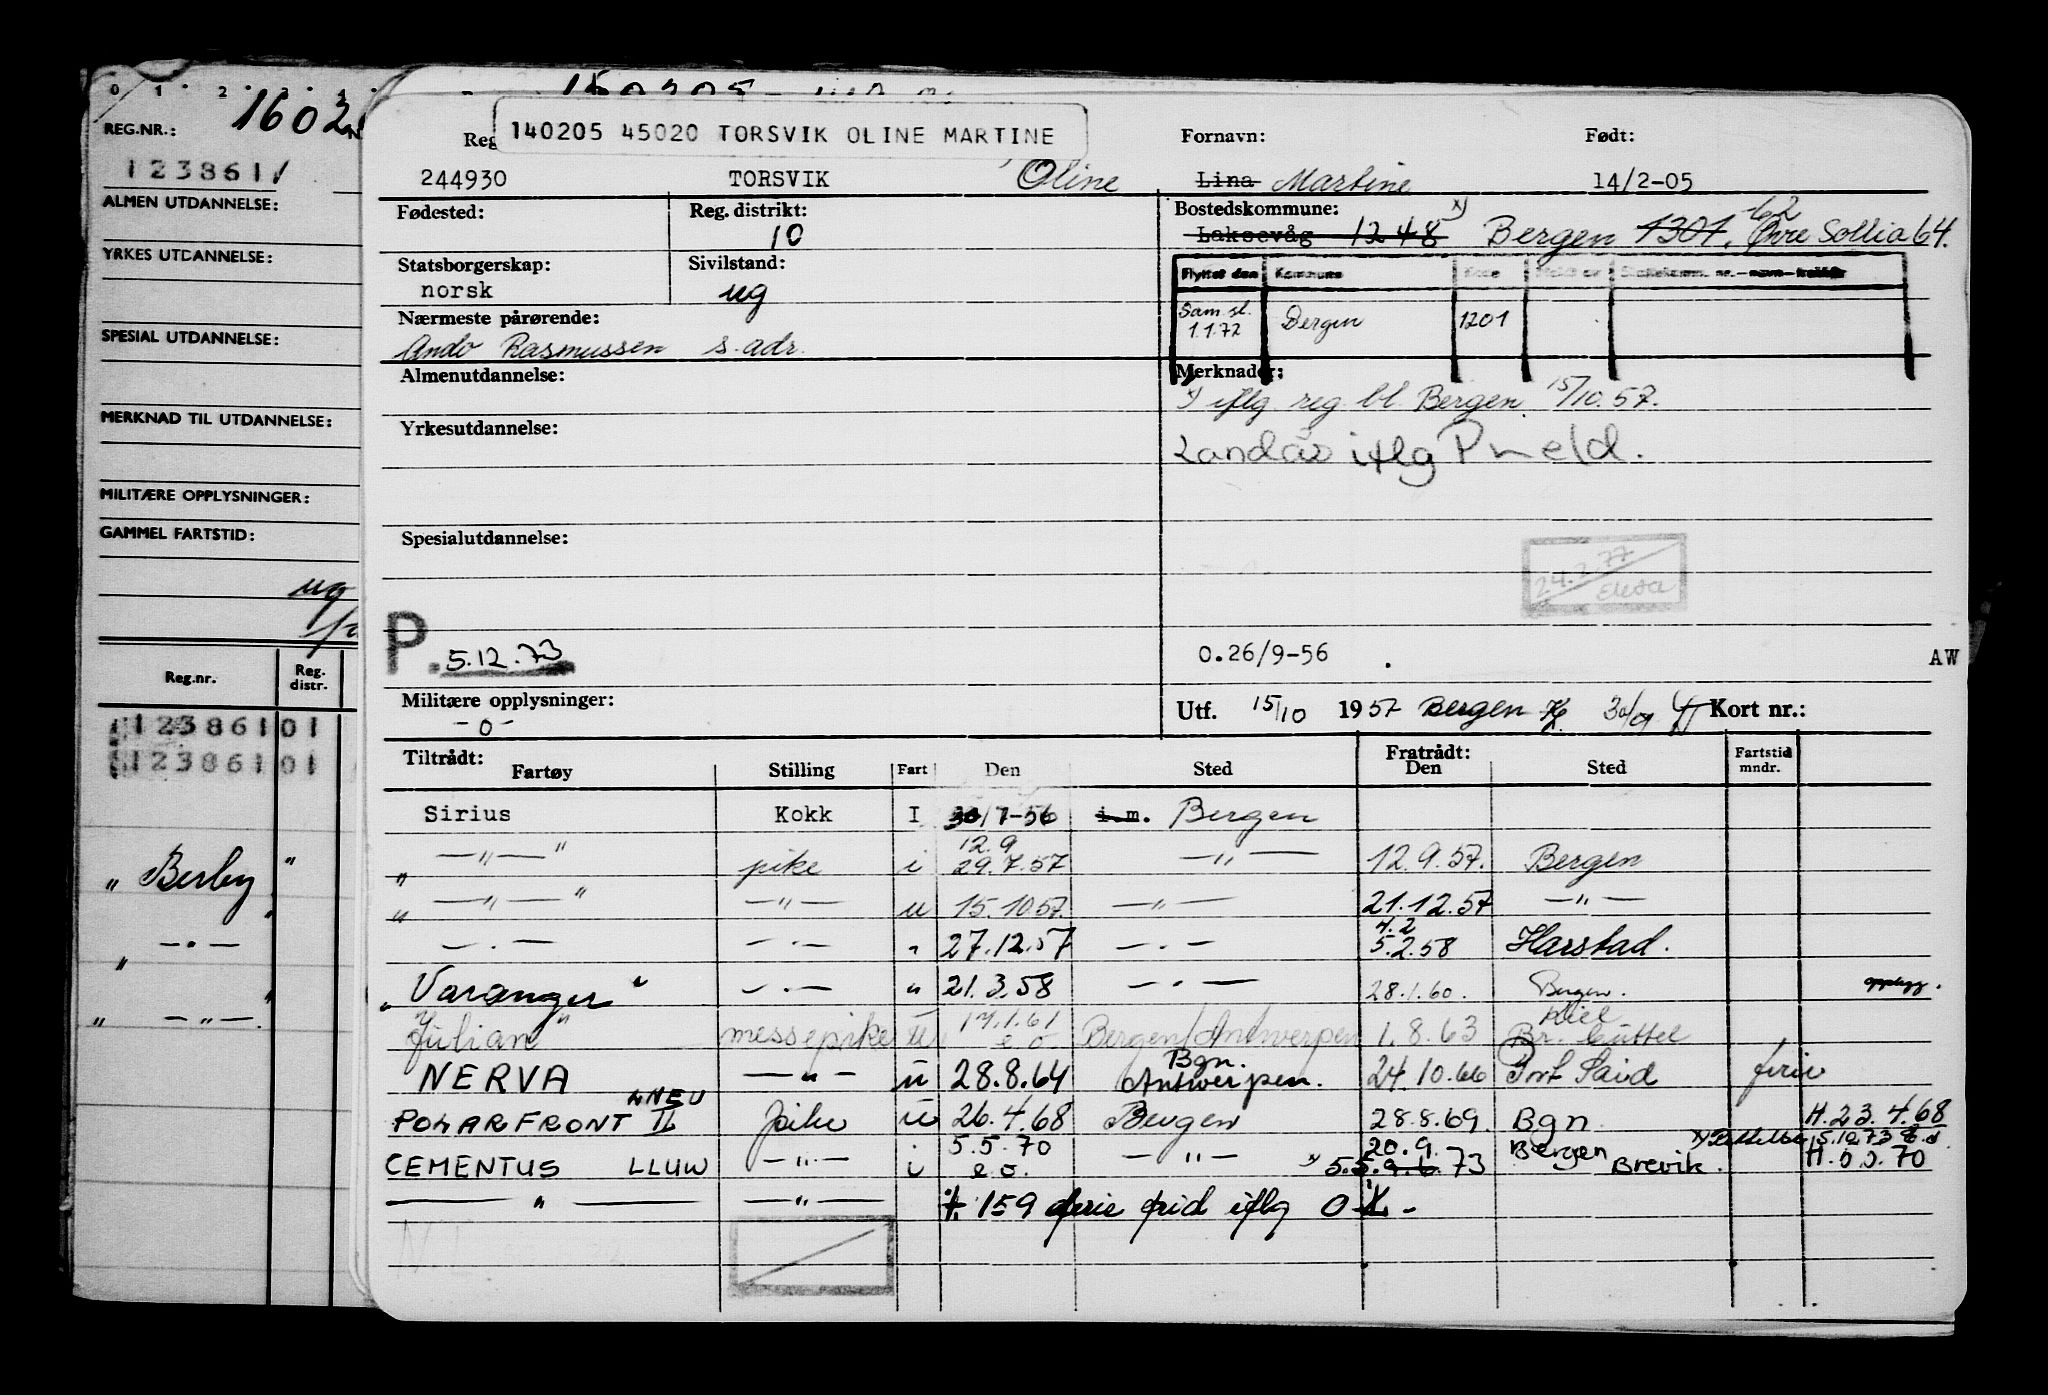 0 1 2
REG.NR.: 1602
123861
ALMEN UTDANNELSE:
YRKES UTDANNELSE:
SPESIAL UTDANNELSE:
MERKNAD TIL UTDANNELSE:
MILITÆRE OPPLYSNINGER:
GAMMEL FARTSTID:
ug
Reg.nr. Reg. distr.
123861 01
123861 01
" Berby "
— " —
" — " —
140205 45020 TORSVIK OLINE MARTINE
Reg Fornavn: Født:
244930 TORSVIK Oline Lina Martine 14/2-05
Fødested: Reg. distrikt: Bostedskommune: x)
10 Laksevåg 1248 Bergen 1301. Øvre Sollia 64.
62
Statsborgerskap: Sivilstand: Flyttet den Kommune
norsk ug
Sam.sl. 1.1.72 Bergen 1201
Nærmeste pårørende:
Rasmussen s. adr.
Almenutdannelse: Merknader:
x) iflg reg. bl. Bergen 15/10.57.
Yrkesutdannelse:
Landås iflg P meld.
Spesialutdannelse:
24.2.77
P. 5.12.73
0.26/9-56 AW
Militære opplysninger:
-0-
Utf. 15/10 1957 Bergen Kort nr.:
Tiltrådt: Fratrådt: Fartstid mndr.
Fartøy Stilling Fart Den Sted Den Sted
Sirius Kokk I 30/7-56 i.m. Bergen
" — " — " pike i 12.9 29.7.57 — " — 12.9.57. Bergen
" — " — " — " — u 15.10.57 — " — 21.12.57 — " —
— " — — " — " 27.12.57 — " — 4.2 5.2.58 Harstad.
" Varanger " — " — " 21.3.58 — " — 28.1.60. Bergen. opplegg.
Julian " messepike u 17.1.61 e.o. Bergen/Antwerpen 1.8.63 Kiel
NERVA — " — u 28.8.64 Bgn. Antwerpen. 24.10.66 Port Said ferie
POLARFRONT II LNEU pike u 26.4.68 Bergen 28.8.69. Bgn. H.23.4.68
CEMENTUS LLUW — " — 5.5.70 e.o. — " — 20.9. x) 5.5.9.6.73 Bergen Brevik. 5.12.73
— " — — " — 159 ferie frid iflg